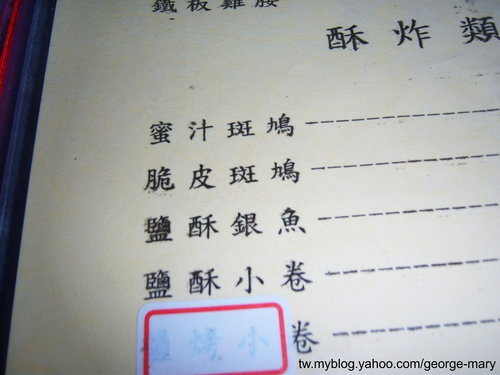 鐵板雞腰
酥炸類
蜜汁斑鳩
脆皮斑鳩
鹽酥銀魚
鹽酥小卷
烤小卷
tw.myblog.yahoo.com/george-mary